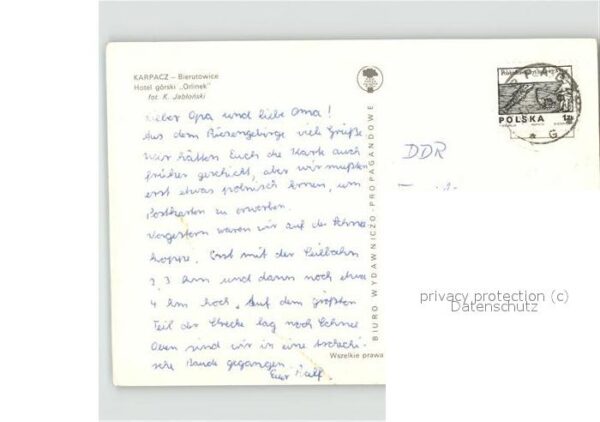 KARPACZ – Bierutowice
Hotel górski „Orlinek"
fot. K. Jabłoński
Lieber Opa und liebe Oma!
Aus dem Riesengebirge viele Grüße
Wir hätten Euch die Karte auch
früher geschickt, aber wir mußten
erst etwas polnisch lernen, um
Postkarten zu erwerben.
Vorgestern waren wir auf der Schnee
koppe. Erst mit der Seilbahn
2,3 km und dann noch etwa
4 km hoch. Auf dem größten
Teil der Strecke lag noch Schnee
Oben sind wir in eine tschechi-
sche Baude gegangen.
Euer Ralf
BIURO WYDAWNICZO-PROPAGANDOWE
Wszelkie prawa
POLSKA
DDR
privacy protection (c)
Datenschutz